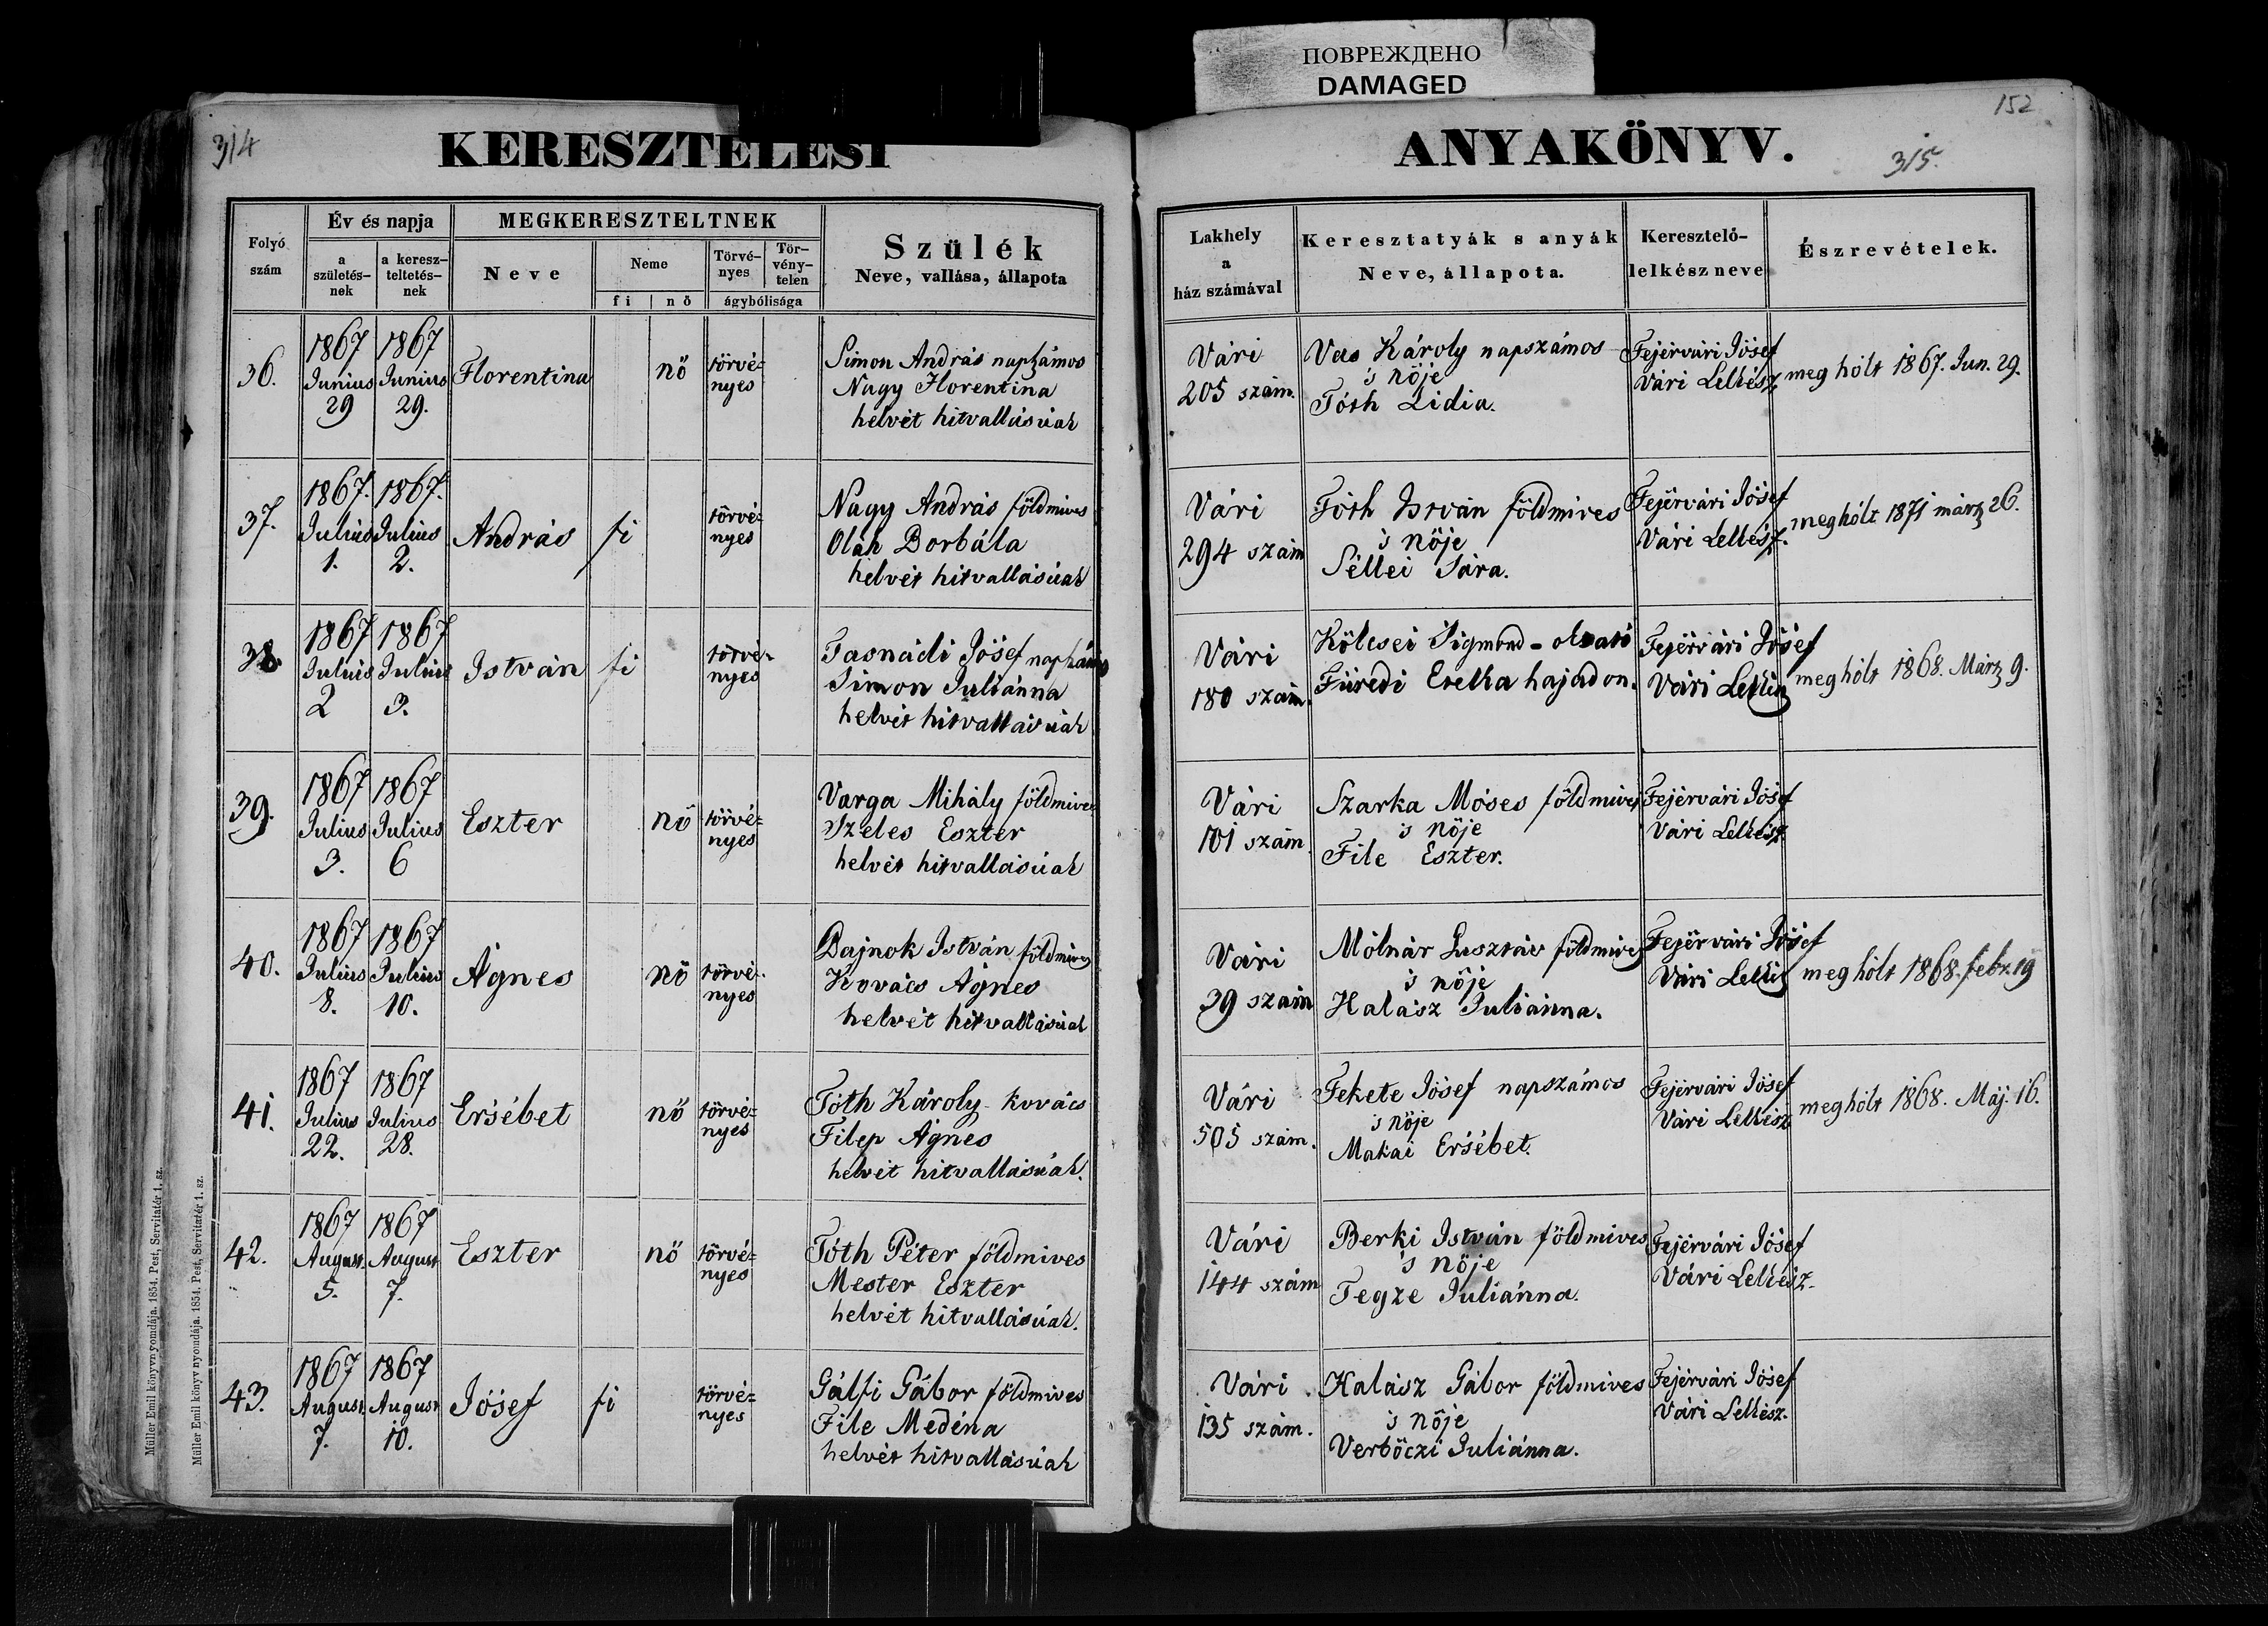 ПОВРЕЖДЕНО
DAMAGED
314
KERESZTELESI
Folyó szám
Év és napja
a születés-nek
a keresz-teltetés-nek
MEGKERESZTELTNEK
Neve
Neme
fi
nö
Törvé-nyes
Tör-vény-telen
ágybólisága
Szülék
Neve, vallása, állapota
36.
1867 Junius 29
1867 Junius 29.
Florentina
nö
törvé-nyes
Simon András napszámos
Nagy Florentina
helvét hitvallásúak
37.
1867. Julius 1.
1867. Julius 2.
András
fi
törvé-nyes
Nagy András földmives
Oláh Borbála
helvét hitvallásúak
38.
1867 Julius 2
1867 Julius 3.
István
fi
törvé-nyes
Tasnádi Jósef
Simon Juliánna
helvét hitvallásúak
39.
1867 Julius 3.
1867 Julius 6
Eszter
nö
törvé-nyes
Varga Mihály földmives
Szeles Eszter
helvét hitvallásúak
40.
1867 Julius 8.
1867 Julius 10.
Ágnes
nö
törvé-nyes
Bajnok István földmives
Kovács Ágnes
helvét hitvallásúak
41.
1867 Julius 22.
1867 Julius 28.
Ersébet
nö
törvé-nyes
Tóth Károly - kovács
Filep Ágnes
helvét hitvallásúak.
42.
1867 August. 5.
1867 August 7.
Eszter
nö
törvé-nyes
Tóth Péter földmives
Mester Eszter
helvét hitvallásúak.
43.
1867 August. 7.
1867 August 10.
Jósef
fi
törvé-nyes
Gálfi Gábor földmives
File Medéna
helvét hitvallásúak
Müller Emil könyvnyomdája. 1854. Pest, Servitatér 1. sz.
Müller Emil könyv nyomdája. 1854. Pest, Servitatér 1. sz.
152
ANYAKÖNYV.
315.
Lakhely a ház számával
Keresztatyák s anyák
Neve, állapota.
Keresztelő-lelkész neve
Észrevételek.
Vári
205 szám.
Vas Károly napszámos
's nöje
Tóth Lidia.
Fejérvári Jósef
Vári Lelkész
meg hólt 1867. Jun. 29.
Vári
294 szám
Tóth István földmives
's nöje
Sellei Sára.
Fejérvári Jósef
Vári Lelkész.
meghólt 1871 márcz 26.
Vári
180 szám.
Kölcsei Sigmond -
Füredi Etelka hajadon.
Fejérvári Jósef
Vári Lelkész
meg hólt 1868. Márcz 9.
Vári
101 szám.
Szarka Móses földmives
's nöje
File Eszter.
Fejérvári Jósef
Vári Lelkész.
Vári
39 szám
Mólnár Gusztáv földmives
's nöje
Halász Juliánna.
Fejérvári Jósef
Vári Lelkész
meg hólt 1868. febr. 19
Vári
505 szám.
Fekete Jósef napszámos
's nöje
Makai Ersébet.
Fejérvári Jósef
Vári Lelkész
meghólt 1868. Máj. 16.
Vári
144 szám
Berki István földmives
's nöje
Tegze Juliánna.
Fejérvári Jósef
Vári Lelkész.
Vári
135 szám.
Halász Gábor földmives
's nöje
Verböczi Juliánna.
Fejérvári Jósef
Vári Lelkész.